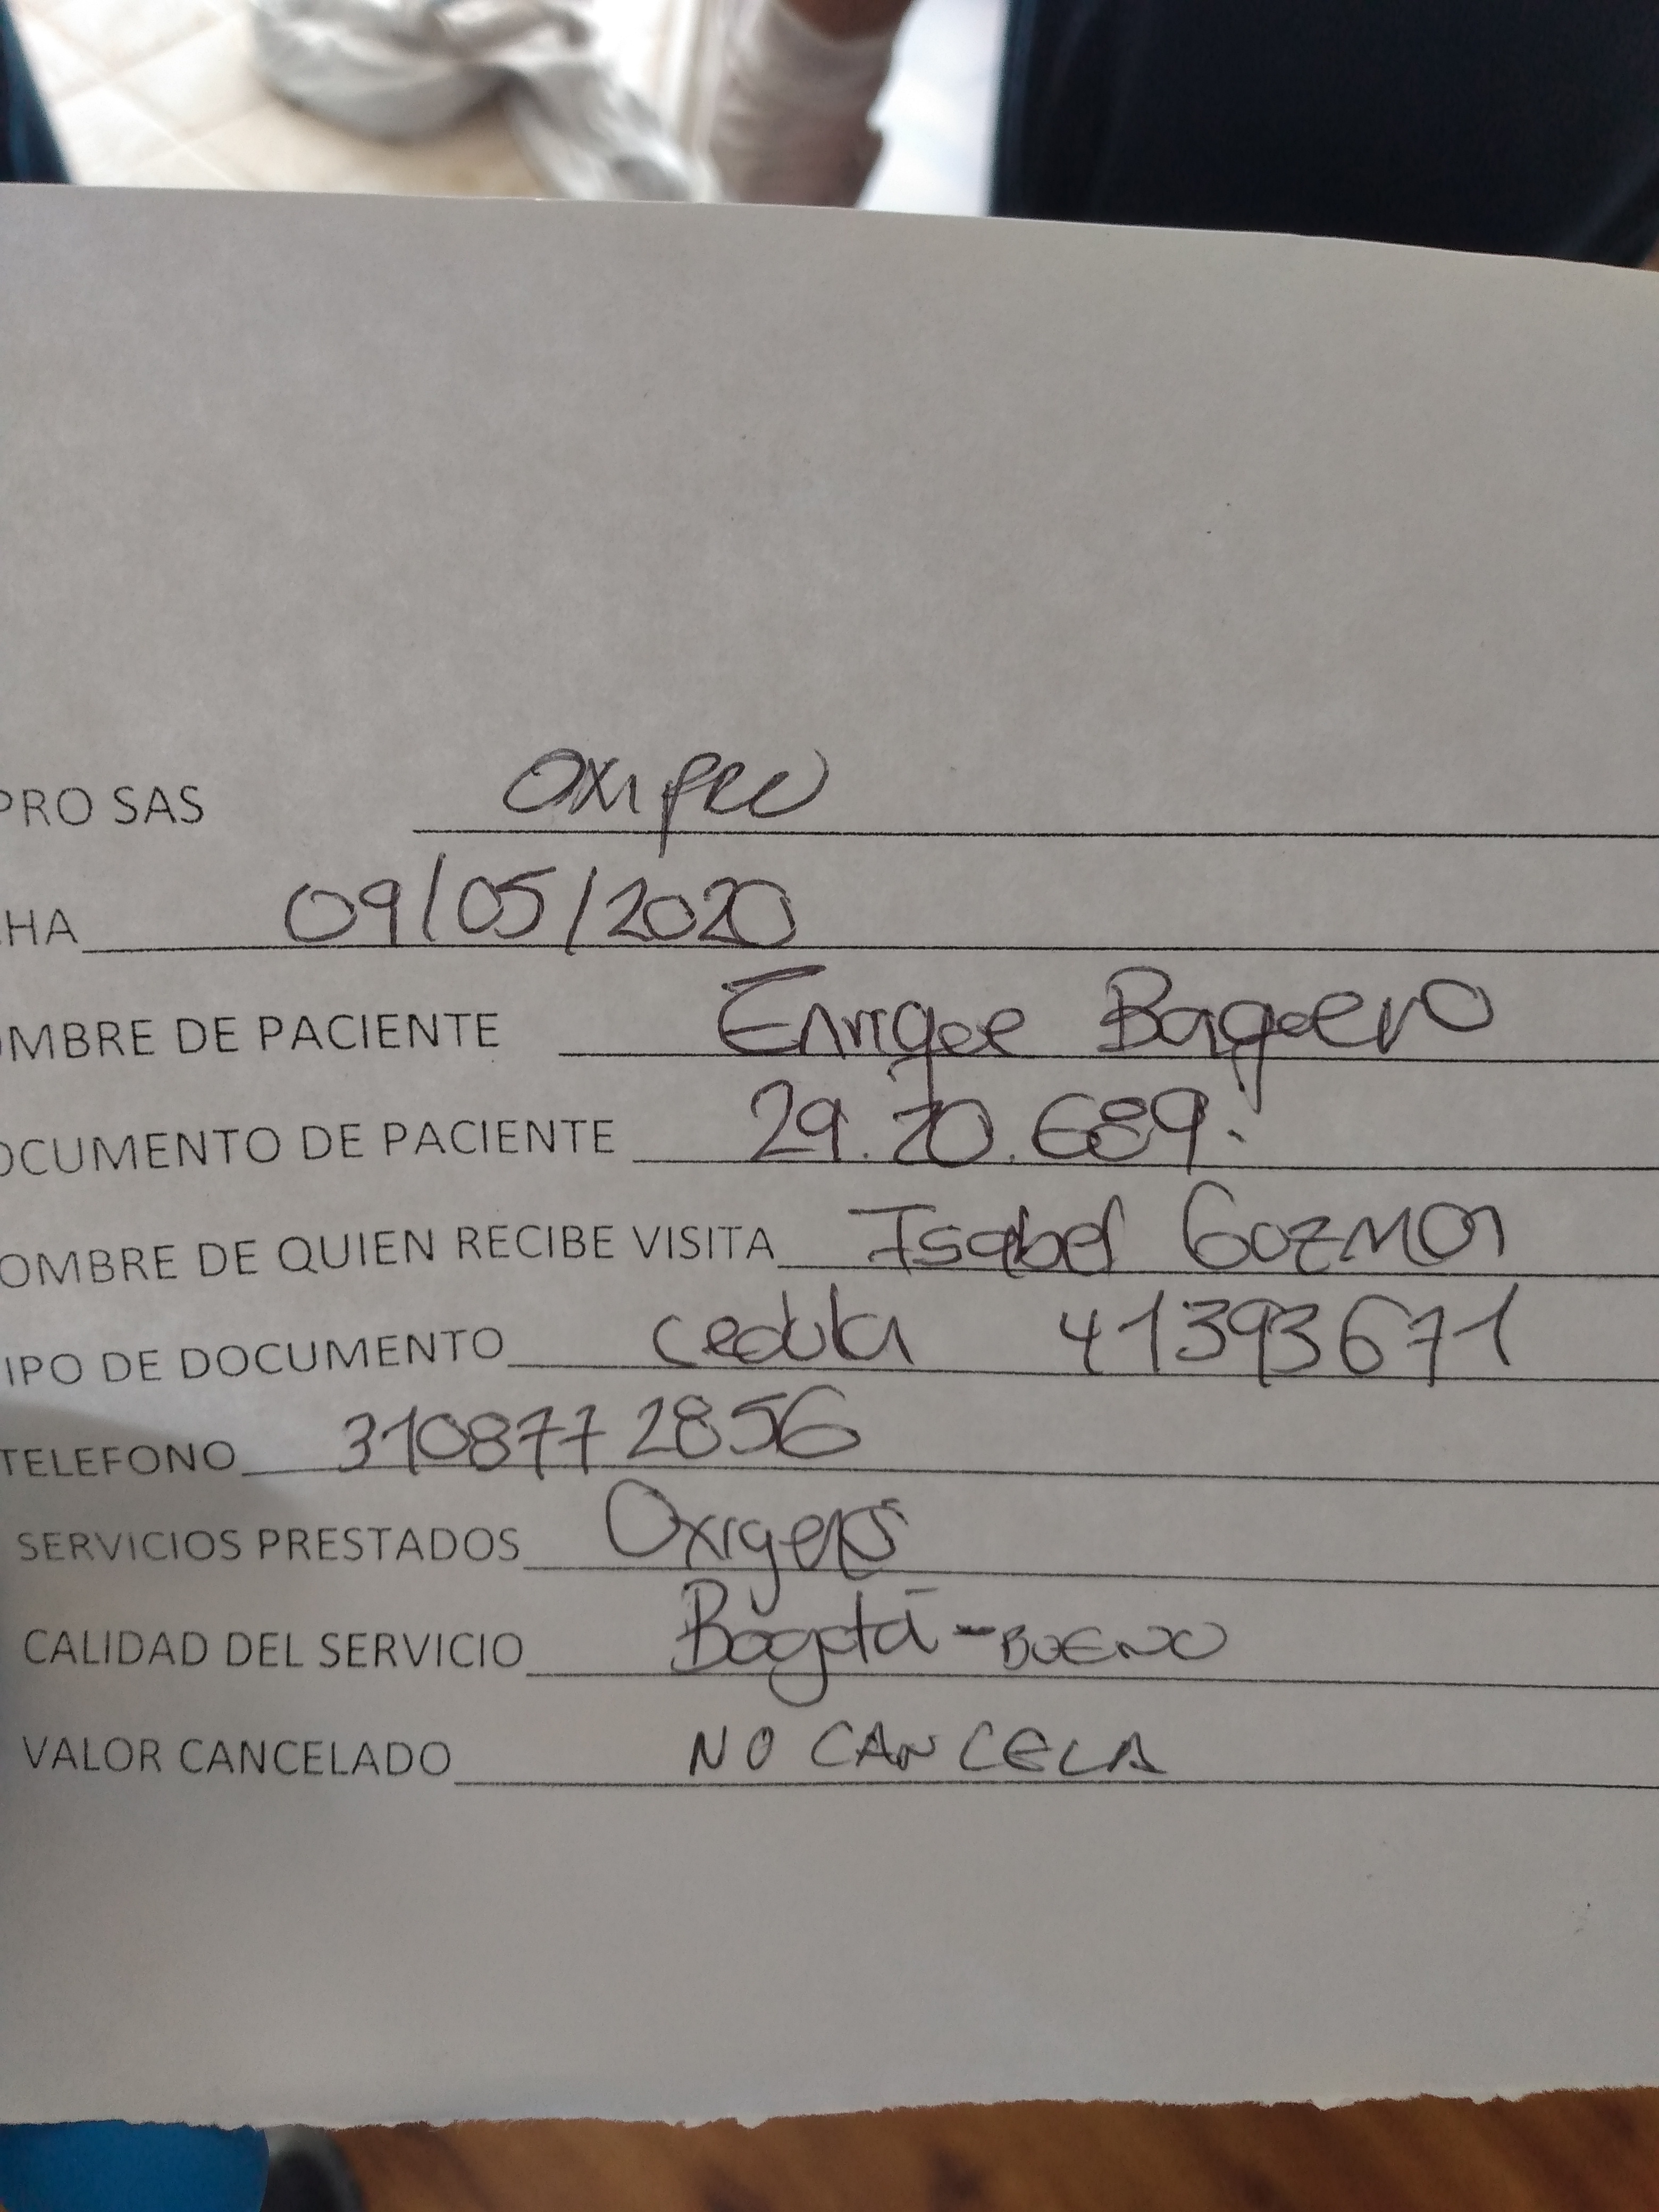 PRO SAS Oxipro
HA 09/05/2020
OMBRE DE PACIENTE Enrique Baquero
OCUMENTO DE PACIENTE 29.70.689.
OMBRE DE QUIEN RECIBE VISITA Isabel Guzman
IPO DE DOCUMENTO cedula 41393671
TELEFONO 3108772856
SERVICIOS PRESTADOS Oxigeno
CALIDAD DEL SERVICIO Bogotá - BUENO
VALOR CANCELADO NO CANCELA